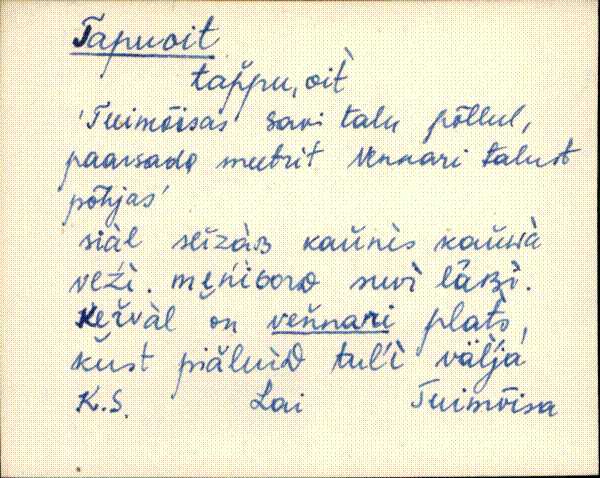 Tapuoit
tap̆pu, oit̀
'Tuimõisas Savi talu põllul,
paarsada meetrit Vennari talust
põhjas'
siàl seĭzàʙ kaŭnès kaŭwà
vèźì. mĕńiɢorᴅ suvì läʙì.
Kĕžvàl ŏn vĕnnari plat̀s,
kŭst piăluìᴅ tul'ì väĺjà
K.S. Lai Tuimõisa